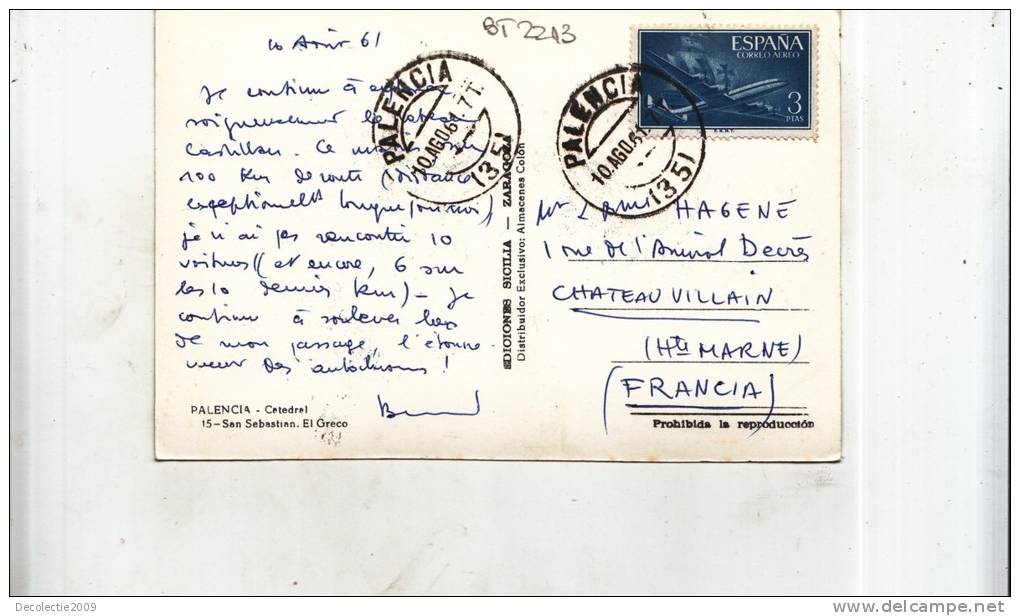 BT 2213
10 Août 61
Je continue à
soigneusement le
Castillan. Ce matin sur
100 Km de route (distance
exceptionnellt longue pour moi)
je n'ai pas rencontré 10
voitures (et encore, 6 sur
les 10 derniers Km) - Je
continue à soulever lors
de mon passage, l'étonne-
ment des autochtones !
PALENCIA - Catedral
15-San Sebastian. El Greco
EDICIONES SICILIA - ZARAGOZA
Distribuidor Exclusivo: Almacenes Colón
PALENCIA
10.AGO.61.7T.
(35)
PALENCIA
10.AGO.61.7T.
(35)
ESPAÑA
CORREO AEREO
3
PTAS
HAGENE
1 rue de l'Amiral Decrès
CHATEAUVILLAIN
(Hte MARNE)
(FRANCIA)
Prohibida la reproducción
Decolectie2009
delcampe.net